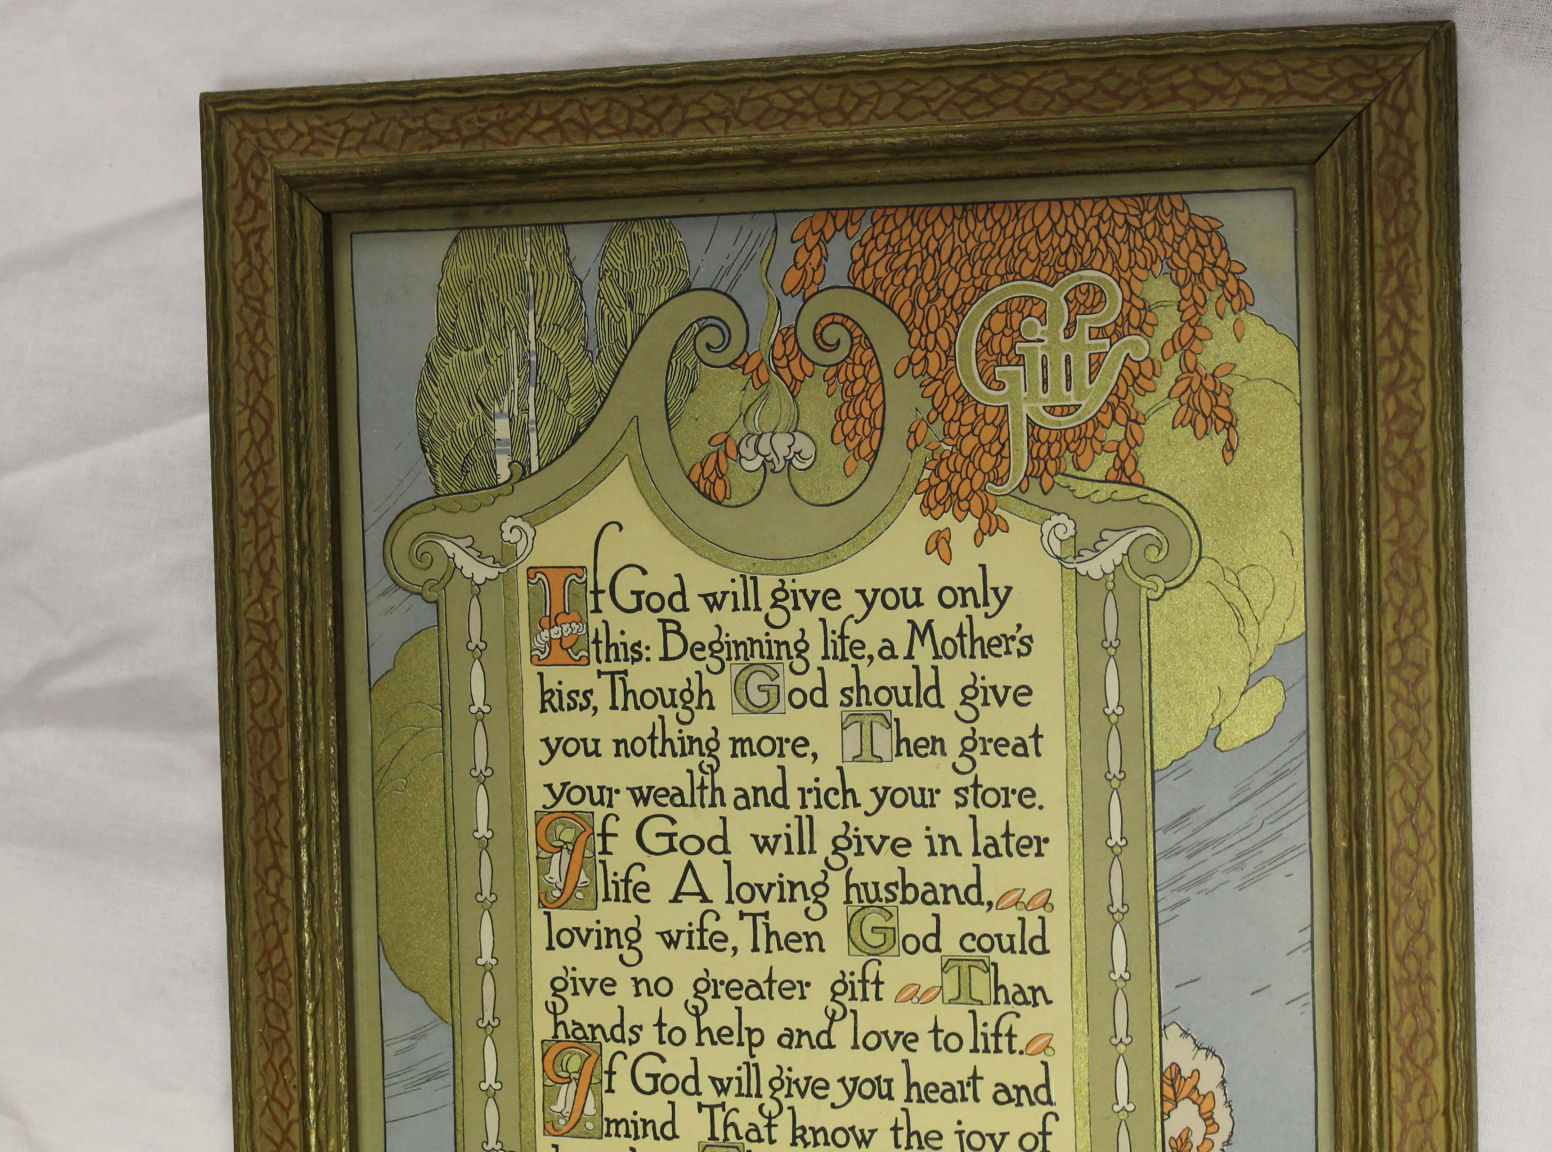 Gifts
If God will give you only
this: Beginning life, a Mother's
kiss, Though God should give
you nothing more, Then great
your wealth and rich your store.
If God will give in later
life A loving husband,
loving wife, Then God could
give no greater gift Than
hands to help and love to lift.
If God will give you heart and
mind That know the joy of